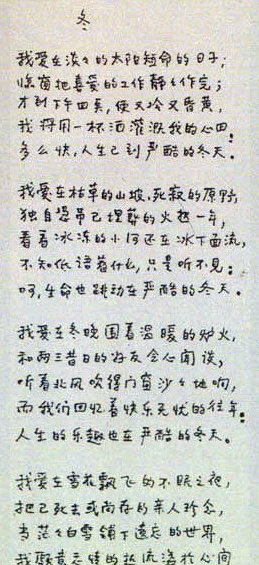 冬
我爱在淡々的太阳短命的日子,
临窗把喜爱的工作静々作完;
才到下午四点,便又冷又昏黄,
我将用一杯酒灌溉我的心田。
多么快,人生已到严酷的冬天。
我爱在枯草的山坡,死寂的原野,
独自凭吊已埋葬的火热一年,
看着冰冻的小河还在冰下面流,
不知低语着什么,只是听不见:
呵,生命也跳动在严酷的冬天。
我爱在冬晚围着温暖的炉火,
和两三昔日的好友会心闲谈,
听着北风吹得门窗沙々地响,
而我们回忆着快乐无忧的往年。
人生的乐趣也在严酷的冬天。
我爱在雪花飘飞的不眠之夜,
把已死去或尚存的亲人珍念,
当茫々白雪铺下遗忘的世界,
我愿意感情的热流溢于心间